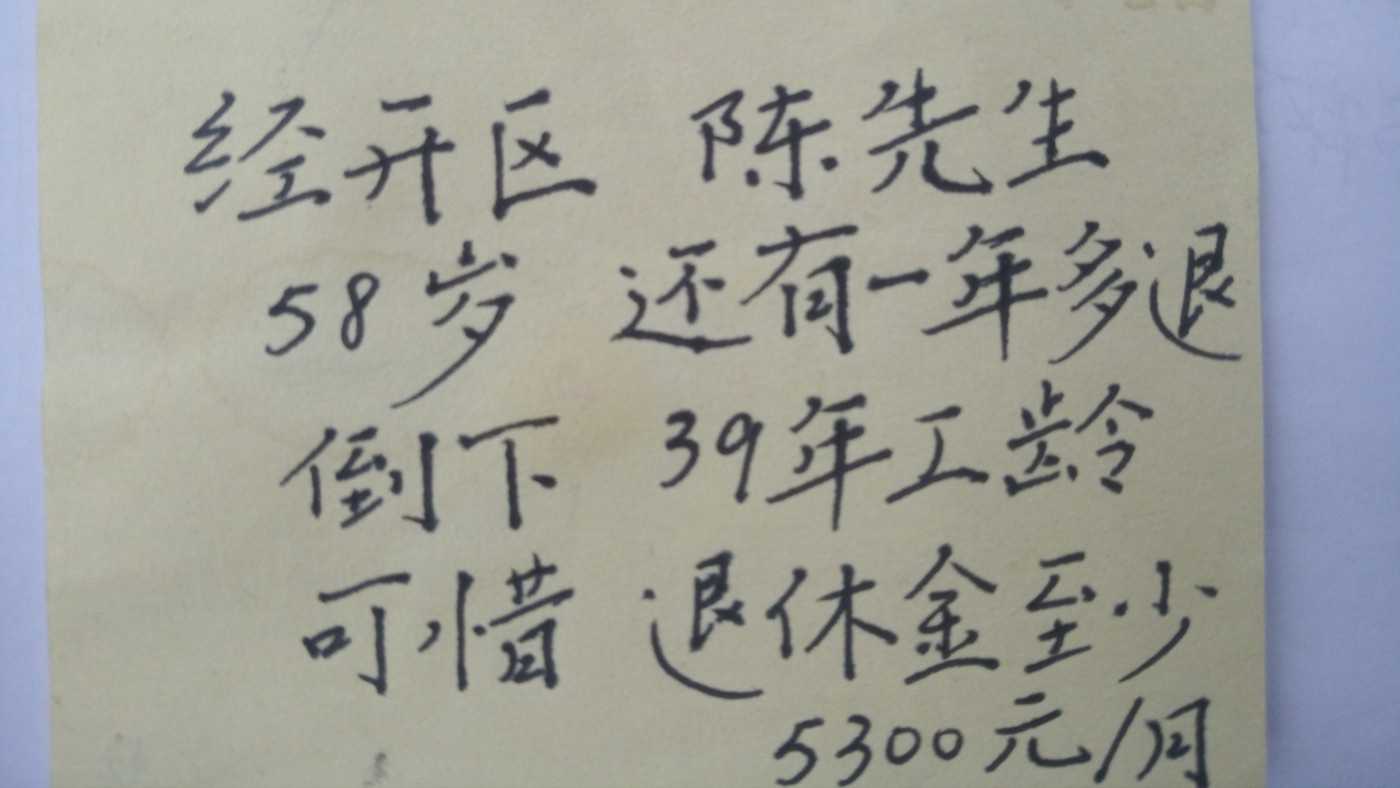 经开区 陈先生
58岁 还有一年多退
倒下 39年工龄
可惜 退休金至少
5300元/月